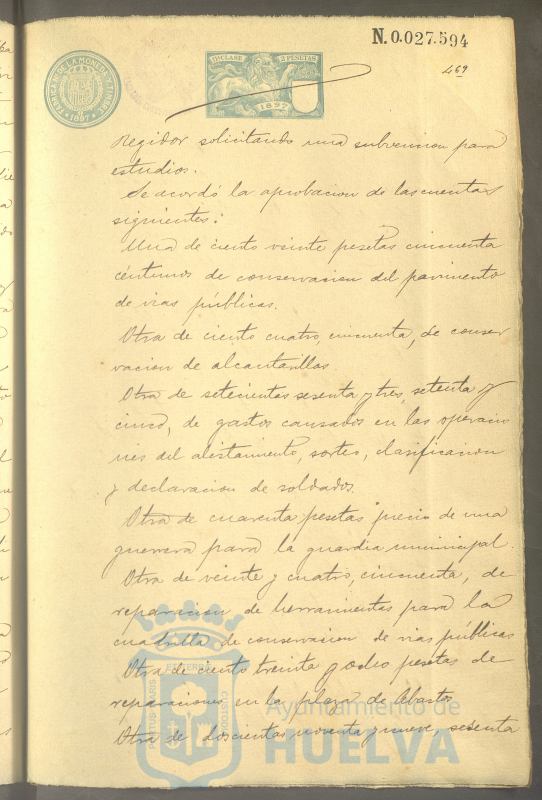 N.0.027.594
469
FABRICA DE LA MONEDA Y TIMBRE
1897
11ª CLASE 2 PESETAS
1897
Regidor solicitando una subvencion para
estudios.
Se acordó la aprobacion de las cuentas
siguientes:
Una de ciento veinte pesetas cincuenta
céntimos de conservacion del pavimento
de vias públicas.
Otra de ciento cuatro, cincuenta, de conser
vacion de alcantarillas
Otra de setecientas sesenta y tres, setenta y
cinco, de gastos causados en las operacio
nes del alistamiento, sorteo, clasificacion
y declaracion de soldados.
Otra de cuarenta pesetas precio de una
guerrera para la guardia municipal.
Otra de veinte y cuatro, cincuenta, de
reparacion de herramientas para la
cuadrilla de conservacion de vias públicas
Otra de ciento treinta y ocho pesetas de
reparaciones en la plaza de Abastos
Otra de doscientas noventa y nueve, sesenta
PORTUS MARIS ET TERRAE CUSTODIA
Ayuntamiento de
HUELVA